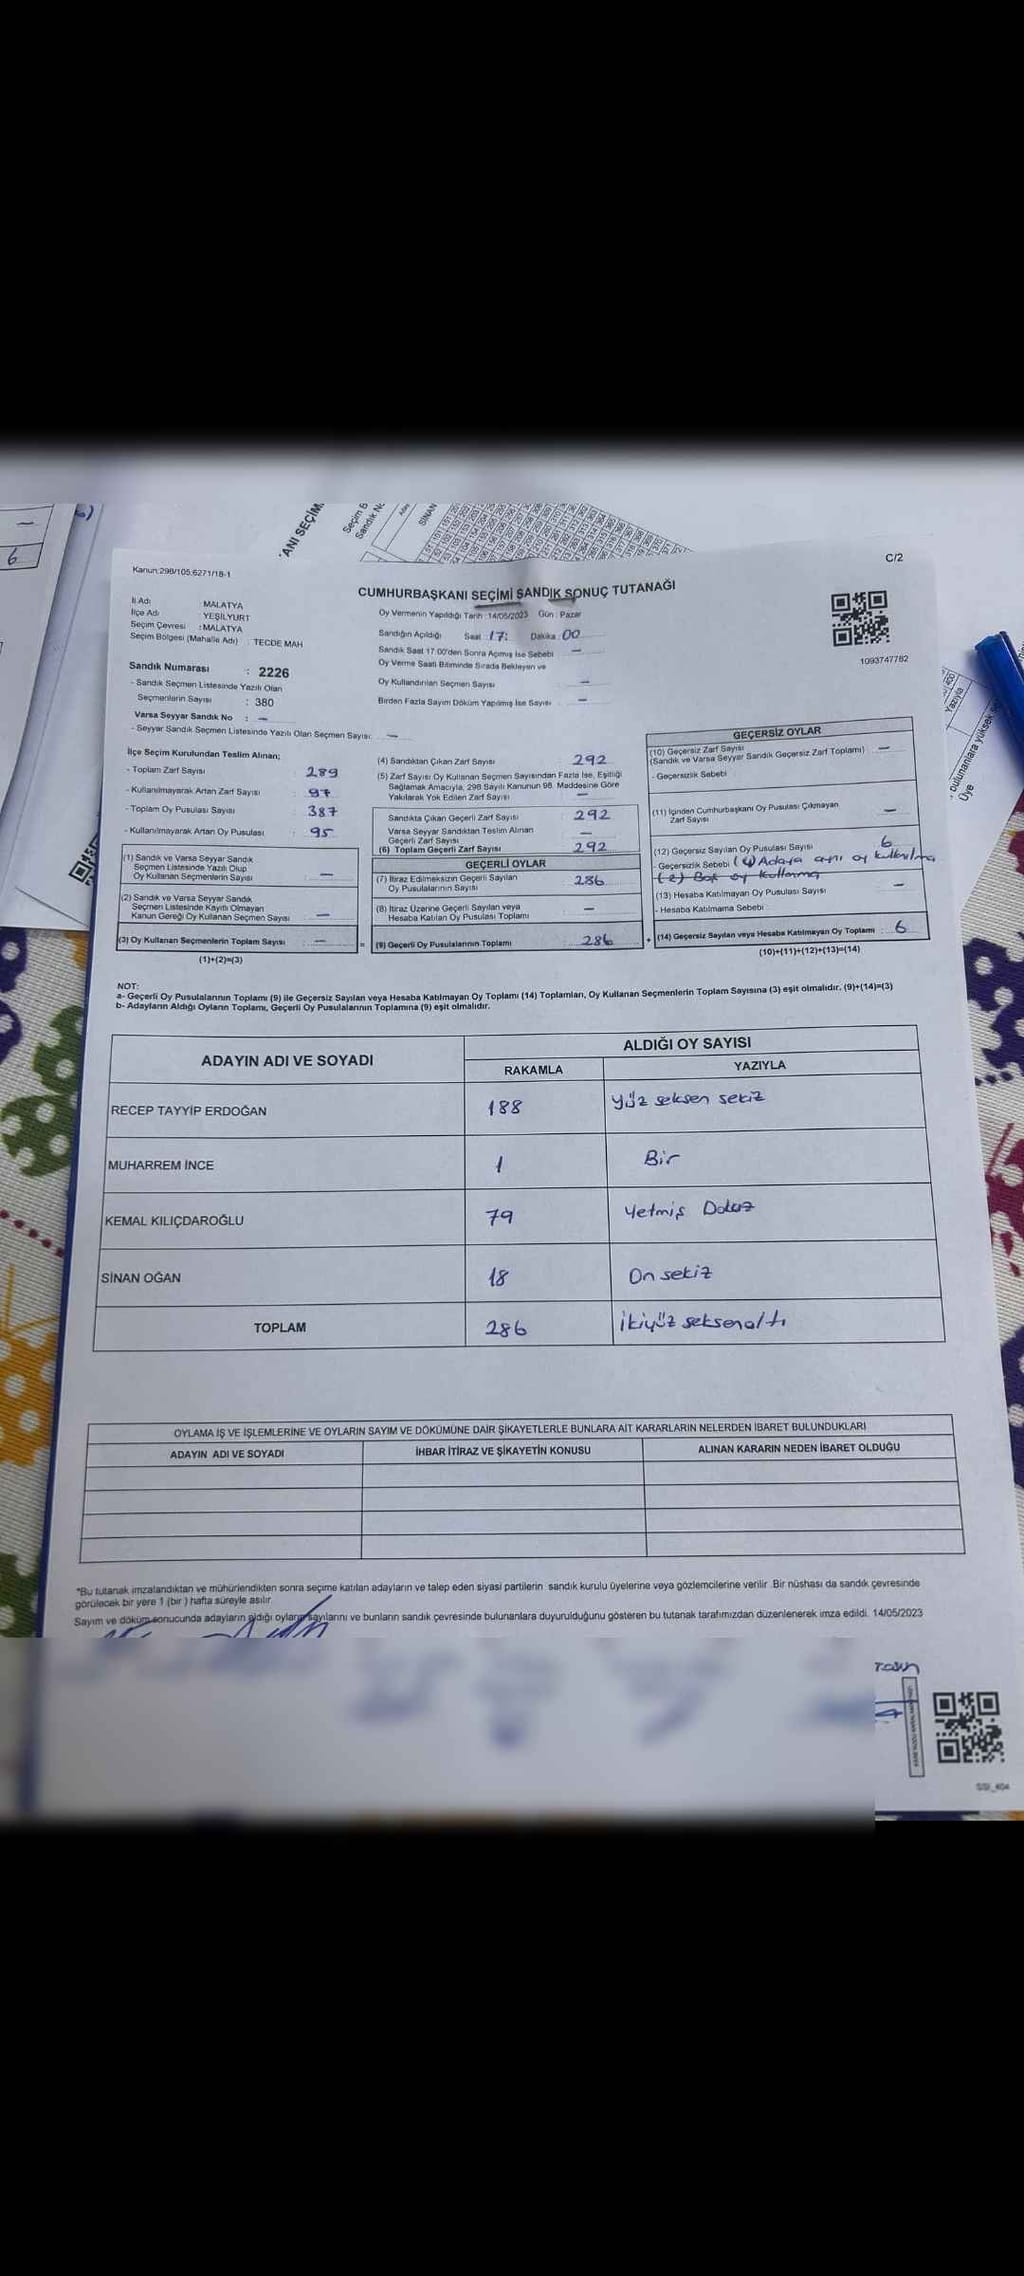 ANI SEÇİM
Seçim B
Sandık N
Aday
SİNAN
6
C/2
Kanun:298/105.6271/18-1
CUMHURBAŞKANI SEÇİMİ SANDIK SONUÇ TUTANAĞI
İl Adı MALATYA
İlçe Adı YEŞİLYURT
Seçim Çevresi : MALATYA
Seçim Bölgesi (Mahalle Adı) : TECDE MAH
Oy Vermenin Yapıldığı Tarih :14/05/2023 Gün : Pazar
Sandığın Açıldığı Saat :17: Dakika :00
Sandık Saat 17.00'den Sonra Açılmış İse Sebebi —
Oy Verme Saati Bitiminde Sırada Bekleyen ve
Oy Kullandırılan Seçmen Sayısı —
Birden Fazla Sayım Döküm Yapılmış İse Sayısı : —
1093747762
Sandık Numarası : 2226
- Sandık Seçmen Listesinde Yazılı Olan
Seçmenlerin Sayısı : 380
Varsa Seyyar Sandık No : —
- Seyyar Sandık Seçmen Listesinde Yazılı Olan Seçmen Sayısı: —
İlçe Seçim Kurulundan Teslim Alınan;
- Toplam Zarf Sayısı : 289
- Kullanılmayarak Artan Zarf Sayısı : 97
- Toplam Oy Pusulası Sayısı : 387
- Kullanılmayarak Artan Oy Pusulası : 95
(1) Sandık ve Varsa Seyyar Sandık
Seçmen Listesinde Yazılı Olup
Oy Kullanan Seçmenlerin Sayısı : —
(2) Sandık ve Varsa Seyyar Sandık
Seçmen Listesinde Kayıtlı Olmayan
Kanun Gereği Oy Kullanan Seçmen Sayısı : —
(3) Oy Kullanan Seçmenlerin Toplam Sayısı : —
(1)+(2)=(3)
=
(4) Sandıktan Çıkan Zarf Sayısı : 292
(5) Zarf Sayısı Oy Kullanan Seçmen Sayısından Fazla İse, Eşitliği
Sağlamak Amacıyla, 298 Sayılı Kanunun 98. Maddesine Göre
Yakılarak Yok Edilen Zarf Sayısı : —
Sandıkta Çıkan Geçerli Zarf Sayısı : 292
Varsa Seyyar Sandıktan Teslim Alınan
Geçerli Zarf Sayısı : —
(6) Toplam Geçerli Zarf Sayısı : 292
GEÇERLİ OYLAR
(7) İtiraz Edilmeksizin Geçerli Sayılan
Oy Pusulalarının Sayısı : 286
(8) İtiraz Üzerine Geçerli Sayılan veya
Hesaba Katılan Oy Pusulası Toplamı : —
(9) Geçerli Oy Pusulalarının Toplamı : 286
+
GEÇERSİZ OYLAR
(10) Geçersiz Zarf Sayısı : —
(Sandık ve Varsa Seyyar Sandık Geçersiz Zarf Toplamı)
- Geçersizlik Sebebi
(11) İçinden Cumhurbaşkanı Oy Pusulası Çıkmayan
Zarf Sayısı : —
(12) Geçersiz Sayılan Oy Pusulası Sayısı : 6
- Geçersizlik Sebebi (4) Adaya ayrı oy kullanılma
(2) Boş oy kullanma
(13) Hesaba Katılmayan Oy Pusulası Sayısı : —
- Hesaba Katılmama Sebebi
(14) Geçersiz Sayılan veya Hesaba Katılmayan Oy Toplamı : 6
(10)+(11)+(12)+(13)=(14)
NOT:
a- Geçerli Oy Pusulalarının Toplamı (9) ile Geçersiz Sayılan veya Hesaba Katılmayan Oy Toplamı (14) Toplamları, Oy Kullanan Seçmenlerin Toplam Sayısına (3) eşit olmalıdır. (9)+(14)=(3)
b- Adayların Aldığı Oyların Toplamı, Geçerli Oy Pusulalarının Toplamına (9) eşit olmalıdır.
ADAYIN ADI VE SOYADI ALDIĞI OY SAYISI
RAKAMLA YAZIYLA
RECEP TAYYİP ERDOĞAN 188 Yüz seksen sekiz
MUHARREM İNCE 1 Bir
KEMAL KILIÇDAROĞLU 79 Yetmiş Dokuz
SİNAN OĞAN 18 On sekiz
TOPLAM 286 İkiyüz seksenaltı
OYLAMA İŞ VE İŞLEMLERİNE VE OYLARIN SAYIM VE DÖKÜMÜNE DAİR ŞİKAYETLERLE BUNLARA AİT KARARLARIN NELERDEN İBARET BULUNDUKLARI
ADAYIN ADI VE SOYADI İHBAR İTİRAZ VE ŞİKAYETİN KONUSU ALINAN KARARIN NEDEN İBARET OLDUĞU
*Bu tutanak imzalandıktan ve mühürlendikten sonra seçime katılan adayların ve talep eden siyasi partilerin sandık kurulu üyelerine veya gözlemcilerine verilir .Bir nüshası da sandık çevresinde
görülecek bir yere 1 (bir ) hafta süreyle asılır.
Sayım ve döküm sonucunda adayların aldığı oyların sayılarını ve bunların sandık çevresinde bulunanlara duyurulduğunu gösteren bu tutanak tarafımızdan düzenlenerek imza edildi. 14/05/2023
SSİ_404
400
Yazıyla
bulunanlara yüksek se
Üye